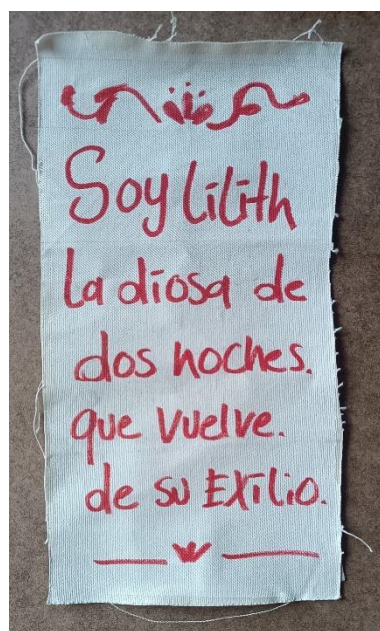 Soy Lilith
la diosa de
dos noches.
que vuelve.
de su Exilio.